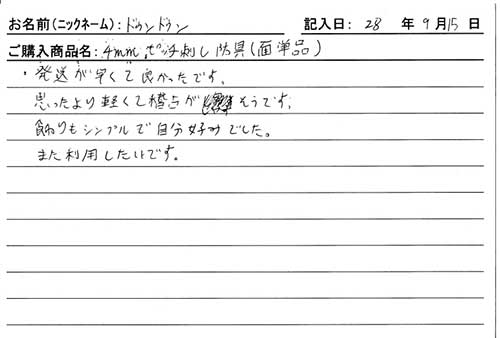 お名前(ニックネーム): ドゥンドゥン 記入日: 28 年 9月 15 日
ご購入商品名: 4mm ピッチ刺し防具(面単品)
・発送が早くて良かったです。
思ったより軽くて稽古が そうです。
飾りもシンプルで自分好みでした。
また利用したいです。